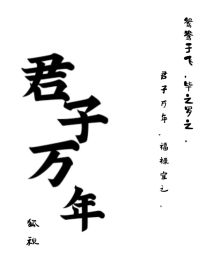 鸳鸯于飞，毕之罗之，
君子万年，福禄宜之。
君子万年
狐祝